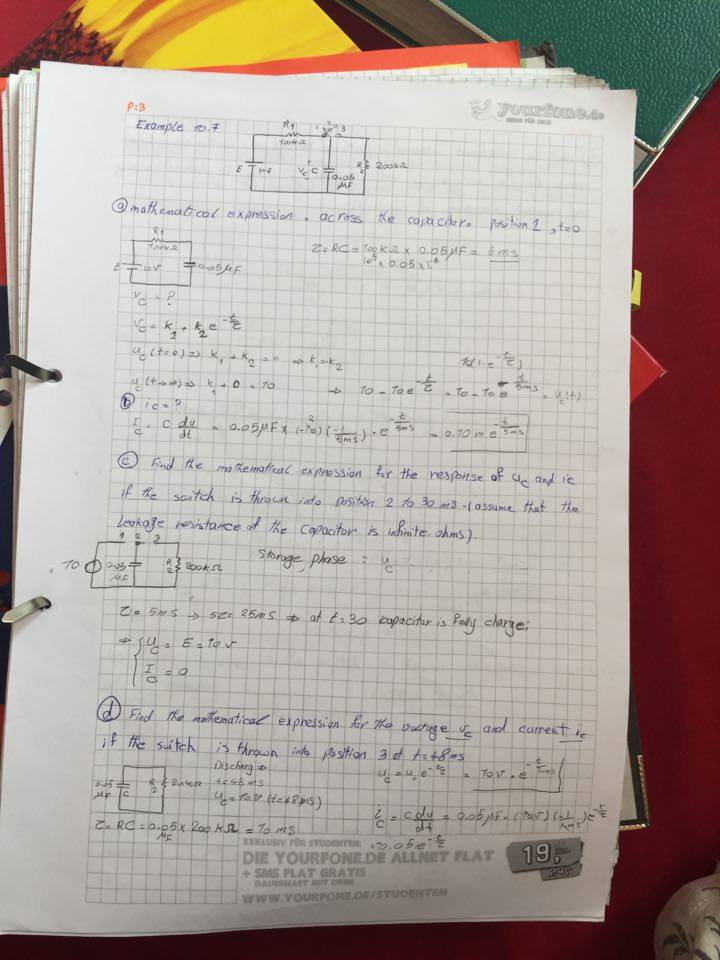 yourfone.de
P:3
Example 10.7
R1
100kΩ
1 2 3
E 10V
Vc C
0.05
μF
R2 200kΩ
(a) mathematical expression. across the capacitor. position 1, t=0
R1
100kΩ
E 10V
0.05μF
τ = RC = 100kΩ × 0.05μF = 5ms
10^5 × 0.05 × 10^-6
Vc = ?
Vc = k1 + k2 e^-t/τ
uc (t=0) => k1 + k2 = 0 => k1=-k2
10(1-e^-t/τ)
uc (t→∞) => k1 + 0 = 10 => 10 - 10e^-t/τ = 10 - 10e^-t/5ms = uc(t)
(b) ic = ?
Ic = C du/dt = 0.05μF × (-10) (-1/5ms) · e^-t/5ms = 0.10 m e^-t/5ms
(c) Find the mathematical expression for the response of uc and ic
if the switch is thrown into position 2 to 30 ms. (assume that the
leakage resistance of the capacitor is infinite ohms).
1 2 3
10
0.05
μF
R2 200kΩ
Storage phase : uc
τ = 5ms → 5τ = 25ms => at t=30 capacitor is fully charge;
=> { uc = E = 10v
Ic = 0
(d) Find the mathematical expression for the voltage vc and current ic
if the switch is thrown into position 3 at t=48ms
0.05
μF C
R2 200kΩ
Discharg =>
t=48ms
uc = 10V (t=48ms)
uc = u0 e^-t/τ = 10V · e^-t/10ms
τ = RC = 0.05μF × 200kΩ = 10 ms
ic = C du/dt = 0.05μF × (10V) (-1/10ms) e^-t/τ
=-0.05 e^-t/τ
EXKLUSIV FÜR STUDENTEN:
DIE YOURFONE.DE ALLNET FLAT
+ SMS FLAT GRATIS
DAUERHAFT MIT DRIN!
WWW.YOURFONE.DE/STUDENTEN
19,